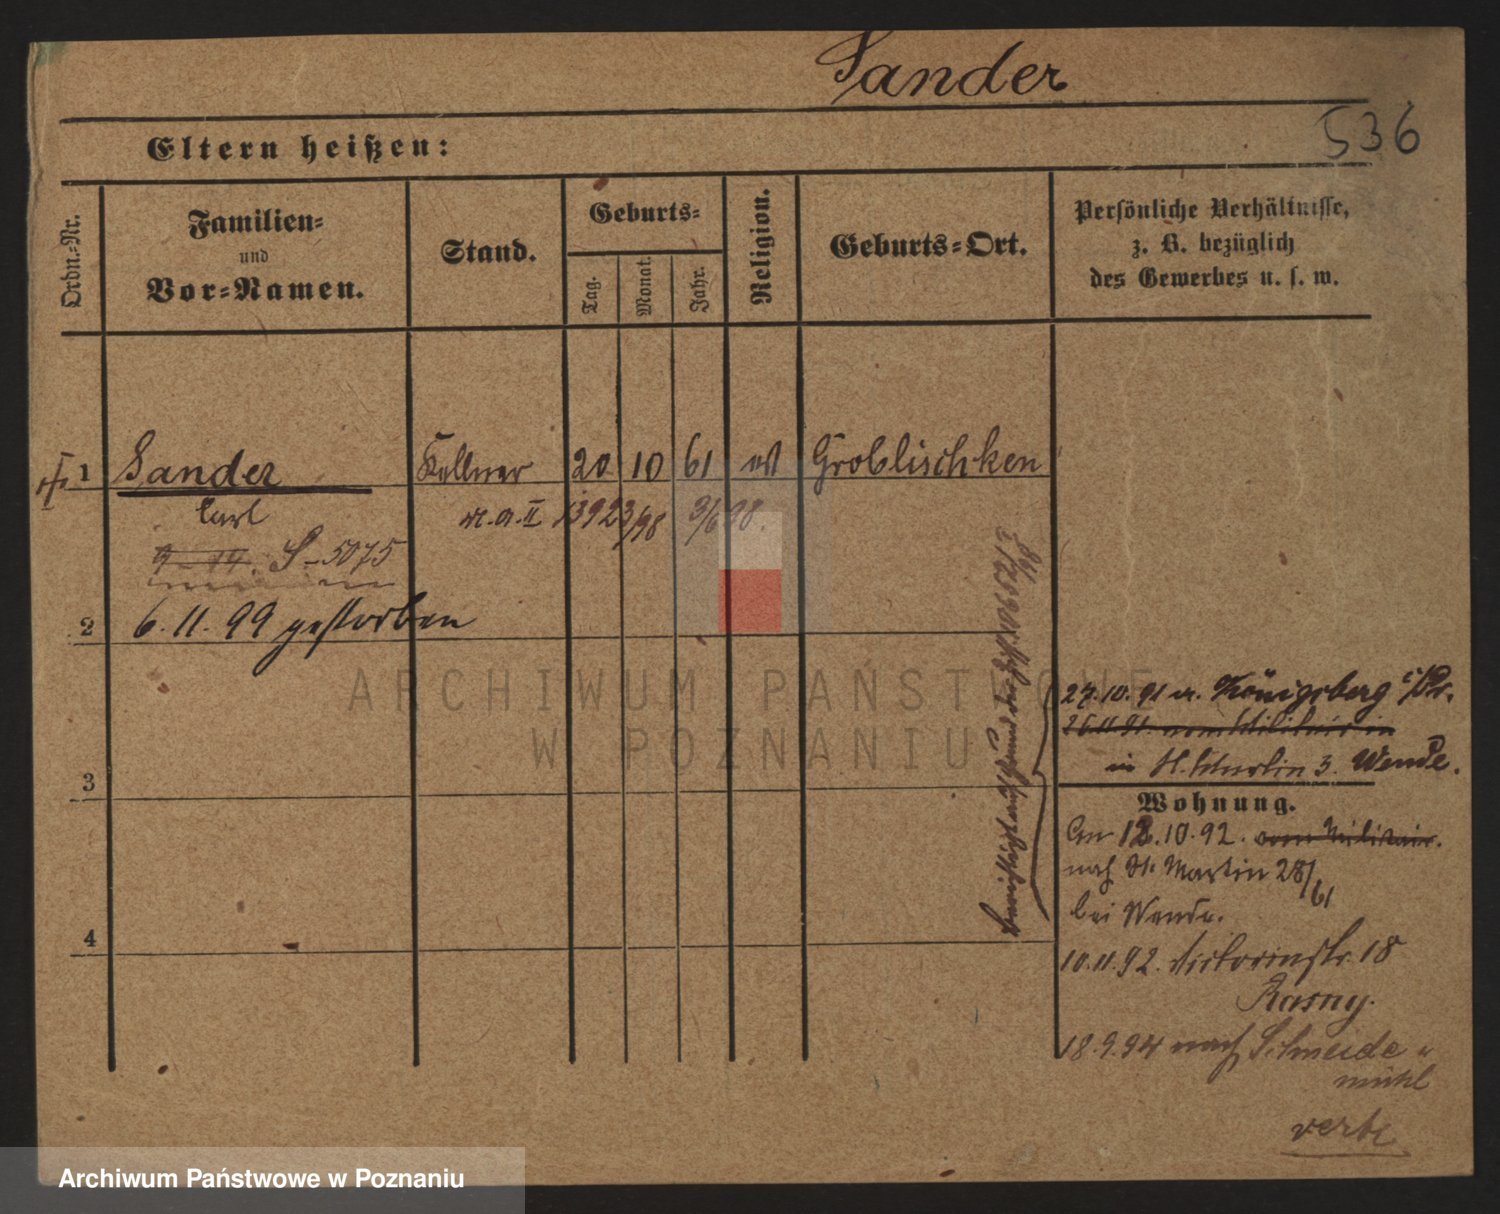 Sander
536
Eltern heißen:
Ordn.-Nr.
Familien-
und
Vor-Namen.
Stand.
Geburts-
Tag.
Monat.
Jahr.
Religion.
Geburts-Ort.
Persönliche Verhältnisse,
z. B. bezüglich
des Gewerbes u. s. w.
1 Sander Kellner 20 10 61 ev Groblischken
Carl
9-14. S-5075
2 6.11.99 gestorben
3
4
27.10.91 v. Königsberg i/Pr.
26.11.91 vom Militair in
in St. Martin 3. Wende.
Wohnung.
Am 12.10.92. vom Militair.
nach St. Martin 28/61
bei Wende.
10.11.92. Victoriastr. 18
Rasny.
18.9.94 nach Schneide
mühl
verte
ARCHIWUM PAŃSTWOWE
W POZNANIU
Archiwum Państwowe w Poznaniu